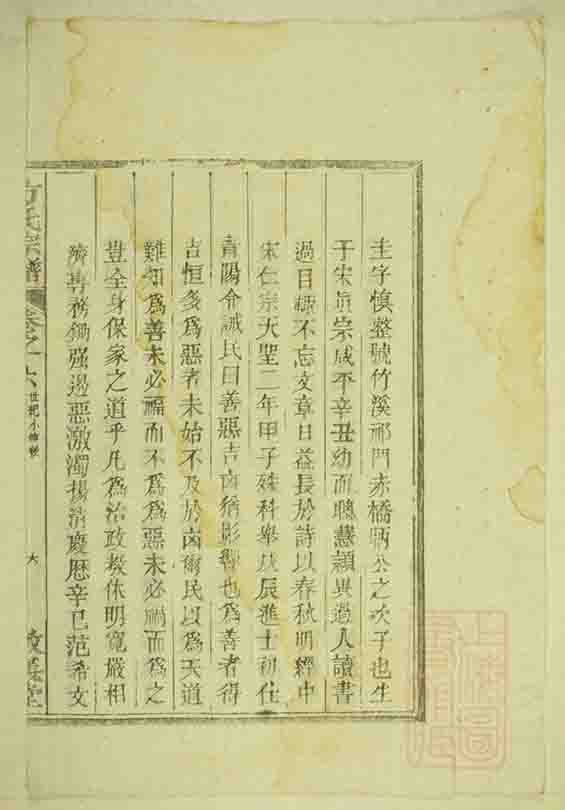 圭字慎整號竹溪祁門赤橋炳公之次子也生
于宋眞宗咸平辛丑幼而聰慧穎異過人讀書
過目輒不忘文章日益長於詩以春秋明經中
宋仁宗天聖二年甲子殊科舉戊辰進士初任
青陽令誡民曰善惡吉凶猶影響也爲善者得
吉恒多爲惡者未始不及於凶爾民以爲天道
難知爲善未必福而不爲爲惡未必禍而爲之
豈全身保家之道乎凡爲治政教休明寬嚴相
濟專務鋤强遏惡激濁揚清慶歷辛巳范希文
方氏宗譜
卷之十八
世紀小傳
六